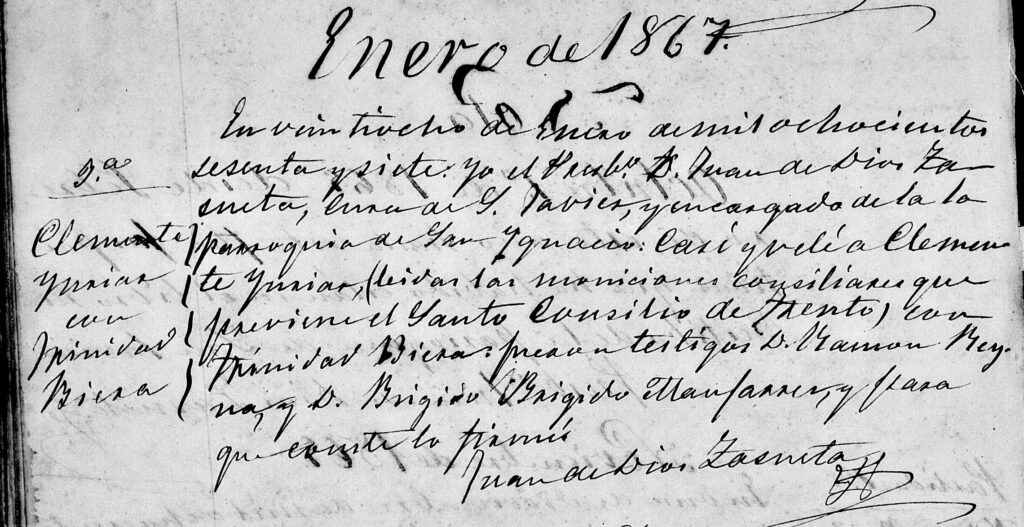 Enero de 1867.
En vintiocho de Enero de mil ochocientos
3.a
sesenta y siete: yo el Presb.o D. Juan de Dios Za-
zueta, Cura de S. Javier, y encargado de la la
Clemente
parroquia de San Ygnacio: Casé y velé a Clemen-
Yuriar
te Yuriar, (leidas las moniciones consiliares que
con
previene el Santo Consilio de Trento) con
Trinidad
Trinidad Biera: fueron testigos D. Ramon Rey-
Biera
na, y D. Brigido Brigido Manjarrez, y para
que conste lo firmé
Juan de Dios Zazueta